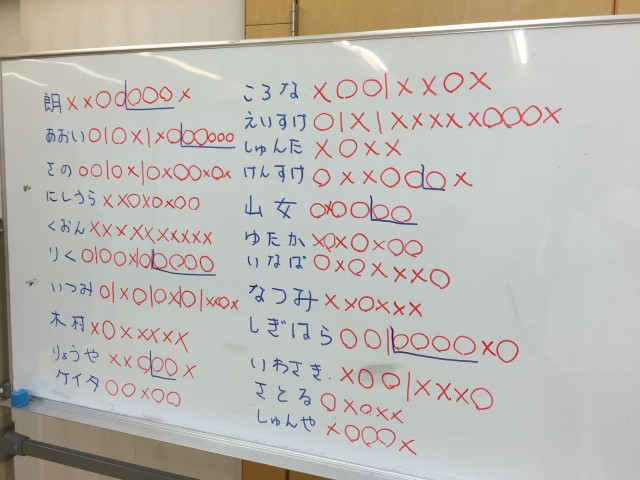 朗 ××○○○○○×
あおい ○|○×|×○○○○○○
その ○○|○×|○×○○×○×
にしうら ××○×○×○○
くおん ××××××××××
りく ○|○○×|○○○○○
いつみ ○|×○|○×|○|××○×
木村 ×○×××××
りょうや ××○○○×
ケイタ ○○×○○
ころな ×○○|××○×
えいすけ ○|×|×××××○○○×
しゅんた ×○××
けんすけ ○××○○○○×
山女 ○×○○○○
ゆたか ×○×○×○○
いなば ○×○×××○
なつみ ××○×××
しぎはら ○○|○○○○×○
いわさき. ×○○|×××○
さとる ○×○××
しゅんや ×○○○×